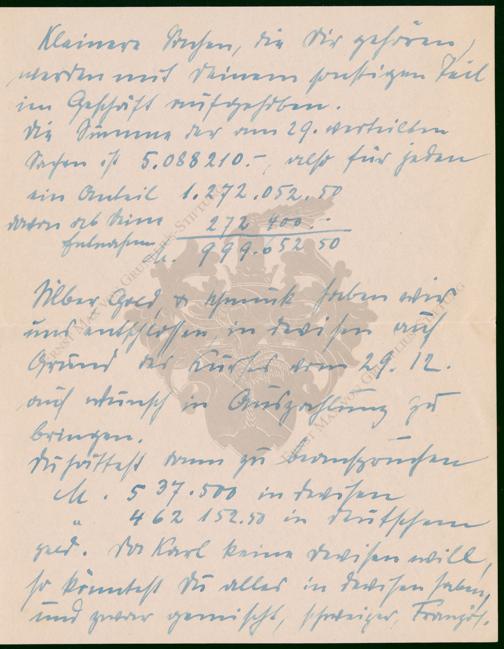 Kleinere Sachen, die Dir gehören,
werden mit Deinem sonstigen Teil
im Geschäft aufgehoben.
Die Summe der am 29. verteilten
Sachen ist 5.088210.-, also für jeden
ein Anteil 1.272.052.50
davon ab Deine 272 400.-
Entnahmen M. 999.652 50
Silber Gold & Schmuck haben wir
uns entschlossen in Devisen auf
Grund des Kurses vom 29. 12.
auf Wunsch in Auszahlung zu
bringen.
Du hättest dann zu beanspruchen
M. 537.500 in Devisen
" 462 152.50 in deutschem
Geld. Da Karl keine Devisen will,
so könntest Du alles in Devisen haben,
und zwar gemischt, schweizer, Französ.
ERNST MAX VON GRUNELIUS-STIFTUNG
ERNST MAX VON GRUNELIUS-STIFTUNG